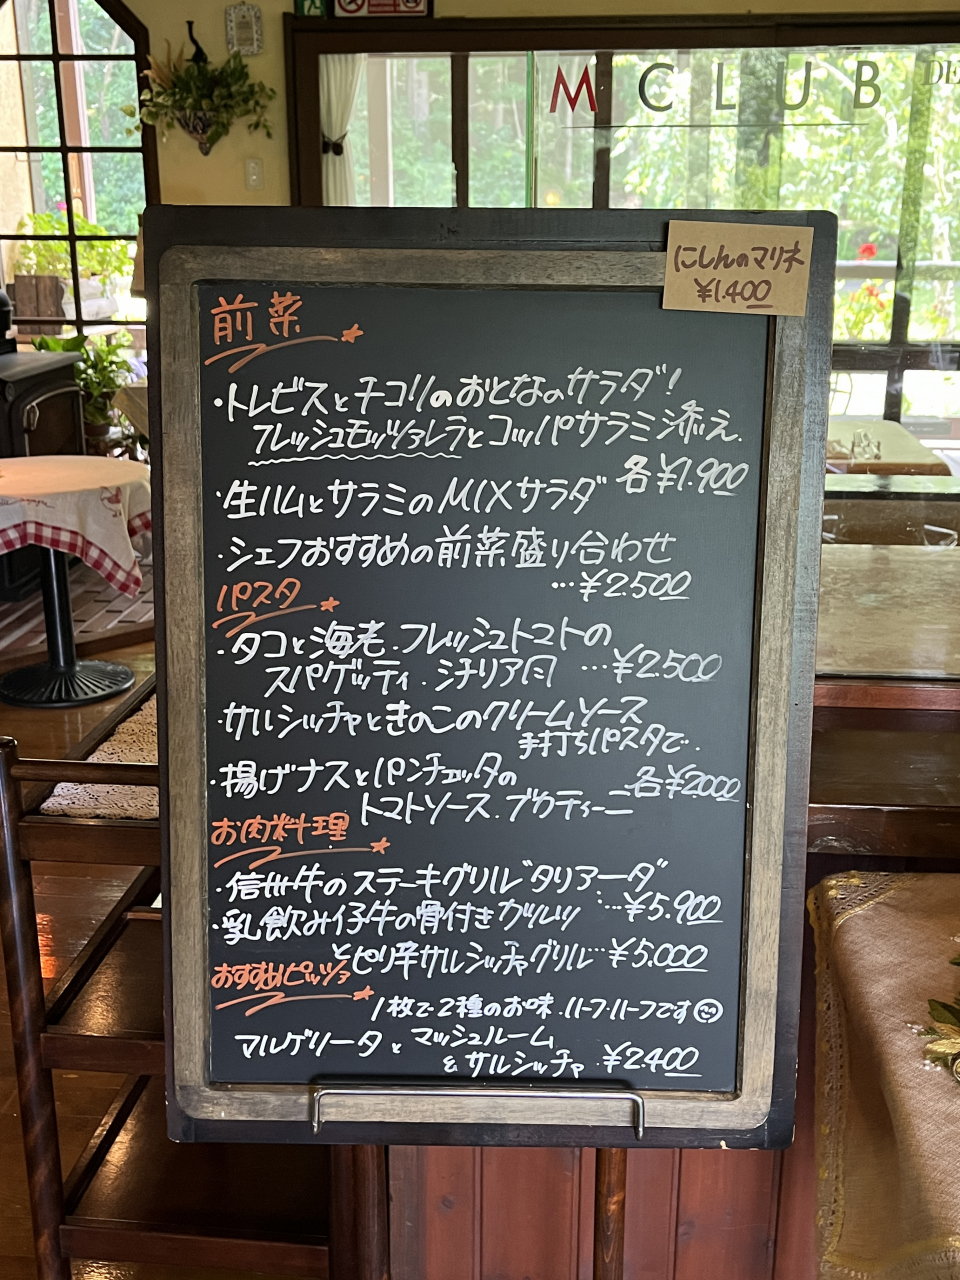 M CLUB DE
にしんのマリネ
¥1.400
前菜
・トレビスとチコリのおとなのサラダ!
フレッシュモッツァレラとコッパサラミ添え.
各¥1.900
・生ハムとサラミのMIXサラダ
・シェフおすすめの前菜盛り合わせ
…¥2.500
パスタ
・タコと海老.フレッシュトマトの
スパゲッティ.シチリア風 …¥2.500
・サルシッチャときのこのクリームソース
手打ちパスタで.
・揚げナスとパンチェッタの 各¥2.000
トマトソース.ブカティーニ
お肉料理
・信州牛のステーキグリル"タリアータ"
…¥5.900
・乳飲み仔牛の骨付きカツレツ
とピリ辛サルシッチャグリル…¥5.000
おすすめピッツァ
1枚で2種のお味.ハーフ.ハーフです
マルゲリータと マッシュルーム
&サルシッチャ.¥2.400